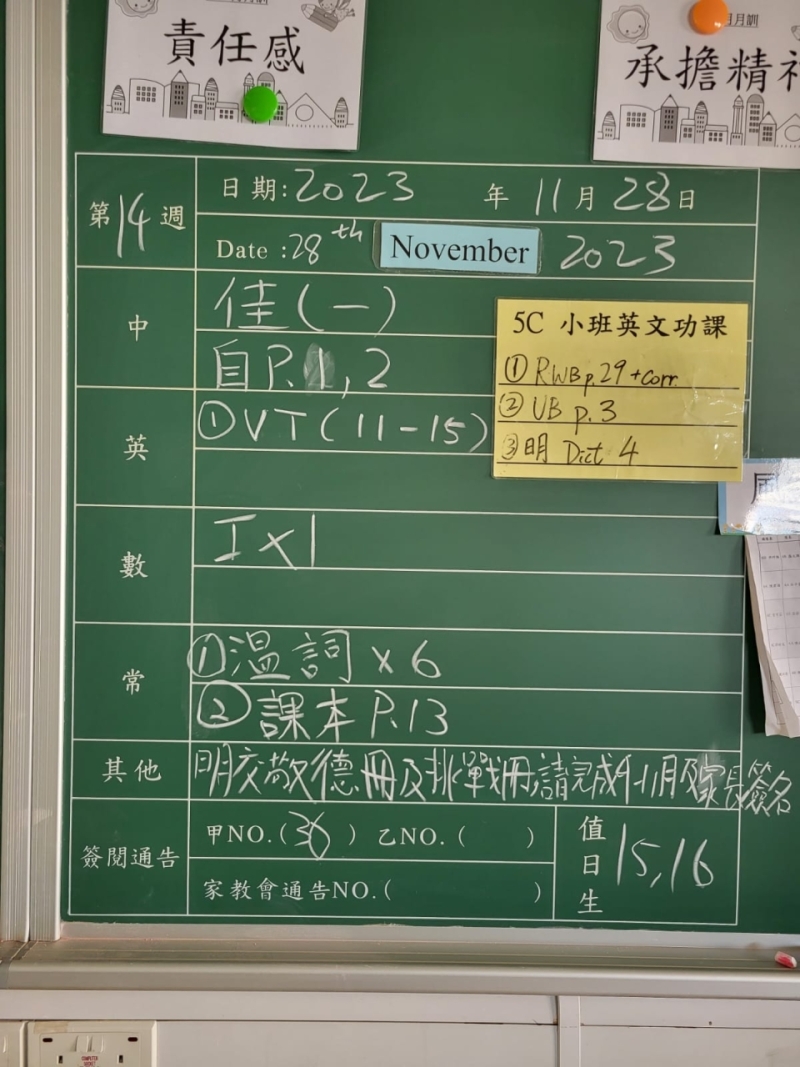 責任感
月訓
承擔精神
第14週
日期:2023 年 11月 28日
Date :28th November 2023
中
佳(一)
自P.1,2
5C 小班英文功課
① RWB p.29 + corr.
② UB p.3
③ 明 Dict 4
英
①VT(11-15)
數
工x1
常
①溫詞 x 6
②課本 P.13
其他
明交敬德冊及挑戰冊請完成9-11月及家長簽名
簽閱通告
甲NO.(36) 乙NO.( )
家教會通告NO.( )
值日生
15,16